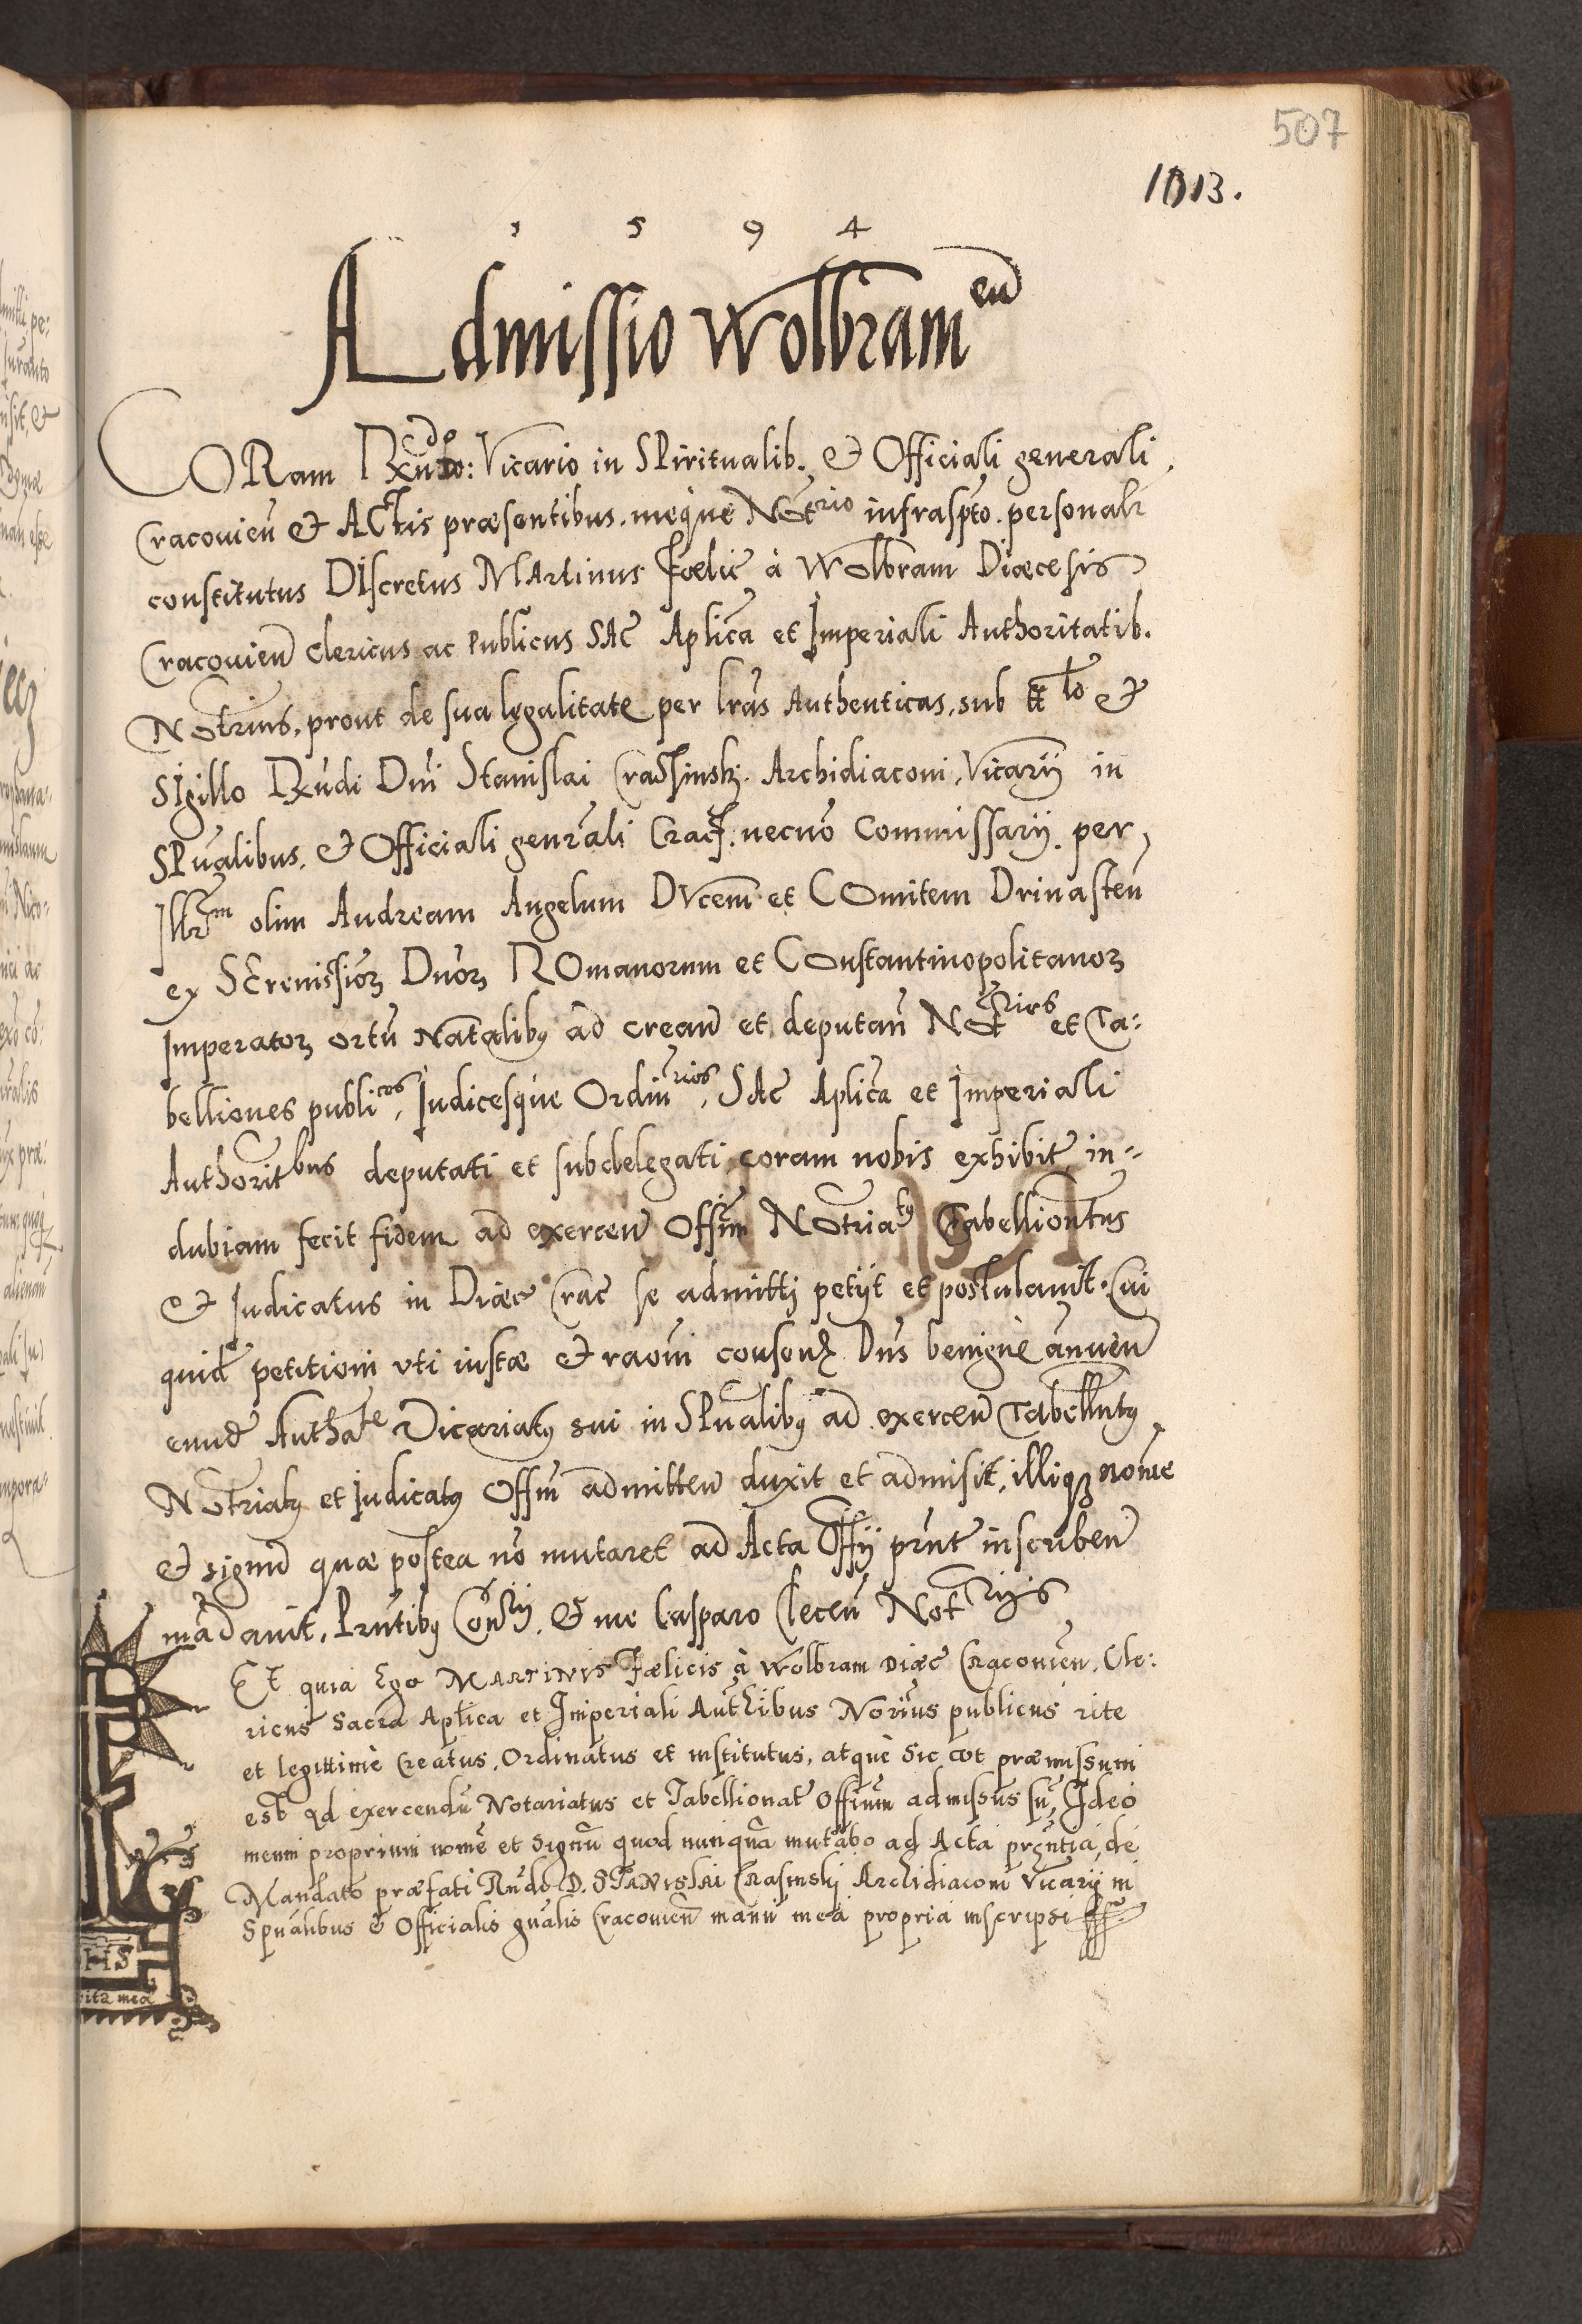 507
1013.
1 5 9 4
Admissio Wolbramen̄
CORam Rxndo Do: Vicario in SPiritualib. et Officiali generali,
Cracovien̄ et ACtis præsentibus. meque Notrio infrasp̄to. personalr
constitutus DIscretus MArtinus Fœlic̄ à Wolbram Diæcesis
Cracovien̄ Clericus ac Publicus SAc̄ Aplica et Imperiali Authoritatib.
Notrius, prout de sua legalitate per lrās Authenticas, sub ttlo et
Sigillo Rxndi Dni Stanislai Crassinskj. Archidiaconi, Vicarij in
SPūalibus. et Officiali genrāli Crac̄. necnō Commissarij. per
Illrm̄ olim Andream Angelum DVcem̄ et COmitem Drinasten̄
ex SErenissior̄ Dnōr ROmanorum et COnstantinopolitanor
Imperator ortū Natalibꝰ ad crean̄ et deputan̄ Notrios et Ta:
belliones publicos, Iudicesque Ordinrios, SAc̄ Aplica et Imperiali
Authoritbus deputati et subdelegati, coram nobis exhibit̄, in-
dubiam fecit fidem ad exercen̄ Offm̄ Notriatꝰ Tabelliontus
et Iudicatus in Diæc̄ Crac̄ se admittj petijt et postulavit. Cui
quid̄ petitioni uti iustæ et raōni conson̄ Dns benignè annuen̄
eund̄ Authate Vicariatꝰ sui in SPūalibꝰ ad exercen̄ Tabellntꝰ,
Notriatꝰ et Iudicatꝰ Offm̄ admitten̄ duxit et admisit, illiqꝫ nōme
et signū quæ postea nō mutaret ad Acta Offij prnt̄ inscriben̄
mādavit. Prntibꝰ Consrij. et me Casparo Clecen̄ Notrijs
Et quia Ego MARTINVS Fælicis à Wolbram Diæc̄ Cracovien̄. Cle:
ricus Sacra Aplica et Imperiali Authibus Norius publicus rite
et legittimè Creatus. Ordinatus et institutus, atque sic út præmissum
est ad exercendū Notariatus et Tabellionat̄ Offium admissus sū, Ideo
meum proprium nomē et Signū quod nunquā mutabo ad Acta prēntia, de
Mandato præfati Rndo D. STANISLAI Crasinskij Archidiaconi Vicarij in
Spūalibus et Officialis gnālis Cracovien̄ manu mea propria inscripsi
HIS
vita mea